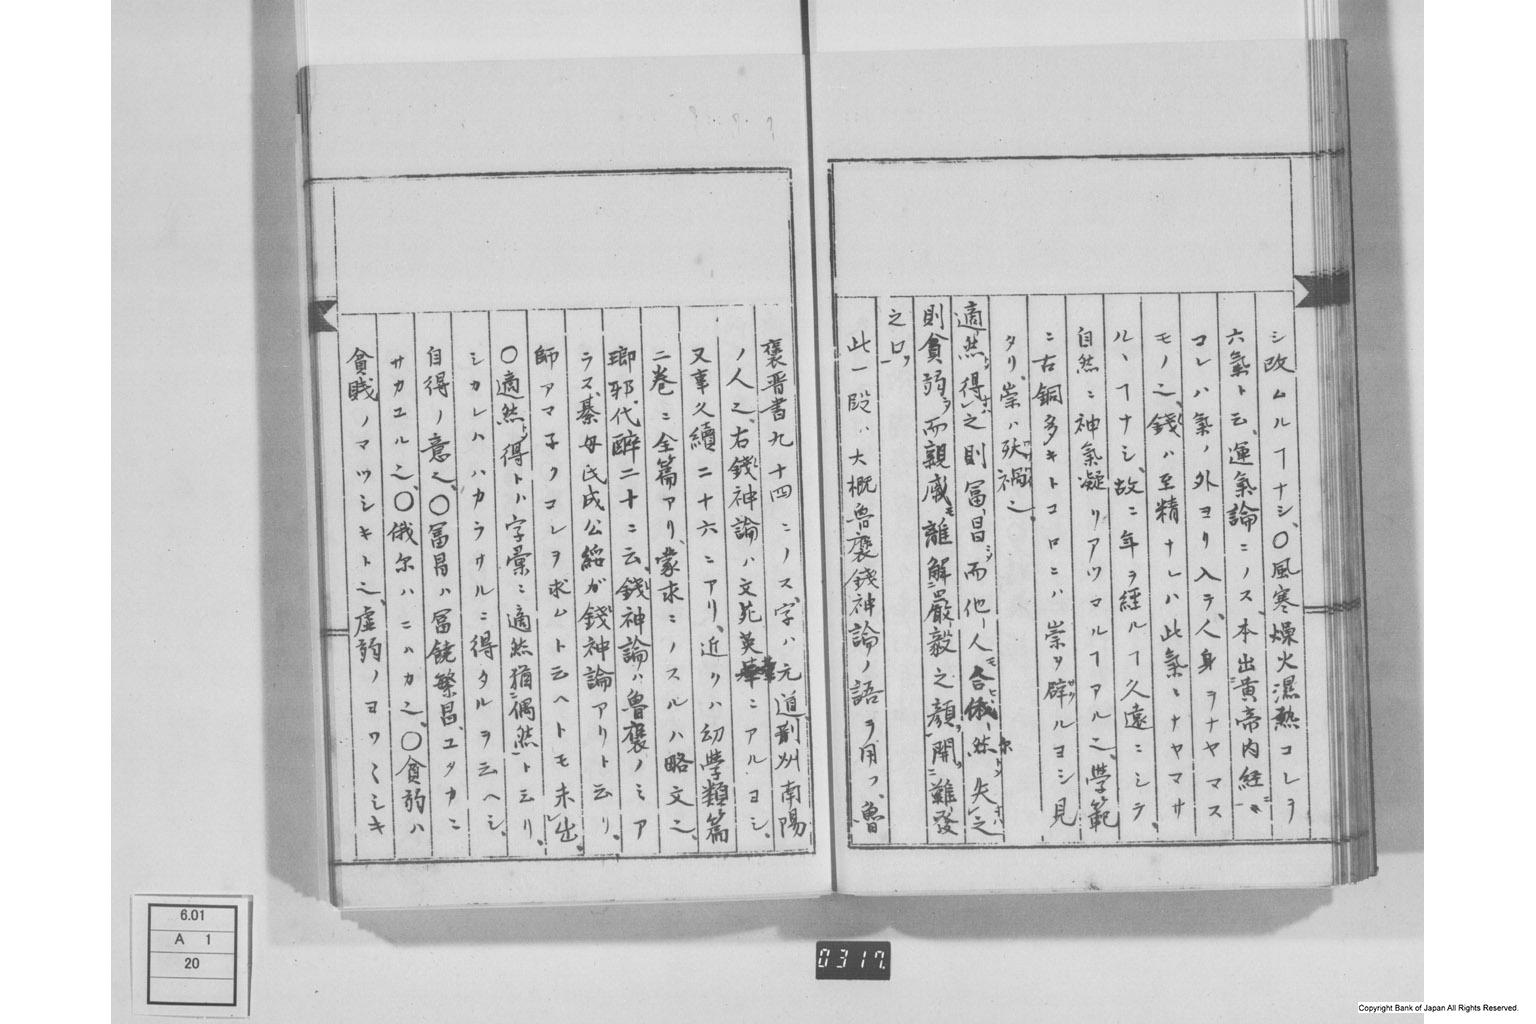 シ改ムルヿナシ、〇風寒燥火濕熱コレヲ
六氣ト云、運氣論ニノス、本出黄帝内經
コレハ氣ノ外ヨリ入テ人身ヲナヤマス
モノ之、錢ハ至精ナレハ此氣ニナヤマサ
ルヽヿナシ、故ニ年ヲ經ルヿ久遠ニシテ、
自然ニ神氣凝リアツマルヿアル之、學範
ニ古銅多キトコロニハ崇ヲ辟ルヨシ見
タリ、崇ハ殃禍之、
適然得之則冨昌而他人合俄然失之
則貧弱而親戚離解嚴毅之顔開難發
之口
此一段ハ大概魯褒錢神論ノ語ヲ用フ、魯
褒晋書九十四ニノス、字ハ元道、荆州南陽
ノ人之、右錢神論ハ文苑英華ニアルヨシ、
又事文續二十六ニアリ、近クハ幼學類篇
二巻ニ全篇アリ、蒙求ニノスルハ略文之、
瑯邪代醉二十ニ云、錢神論ハ魯褒ノミア
ラス、綦母氏成公綏ガ錢神論アリト云リ、
師アマ子クコレヲ求ムト云ヘトモ未出、
〇適然得トハ字彙ニ適然猶偶然ト云リ、
シカレハハカラサルニ得タルヲ云ヘシ、
自得ノ意之、〇冨昌ハ冨饒繁昌、ユタカニ
サカユル之、〇俄尓ハニハカ之、〇貧弱ハ
貧賎ノマツシキト之、虚弱ノヨワ〱シキ
6.01
A 1
20
0317
Copyright Bank of Japan All Rights Reserved.